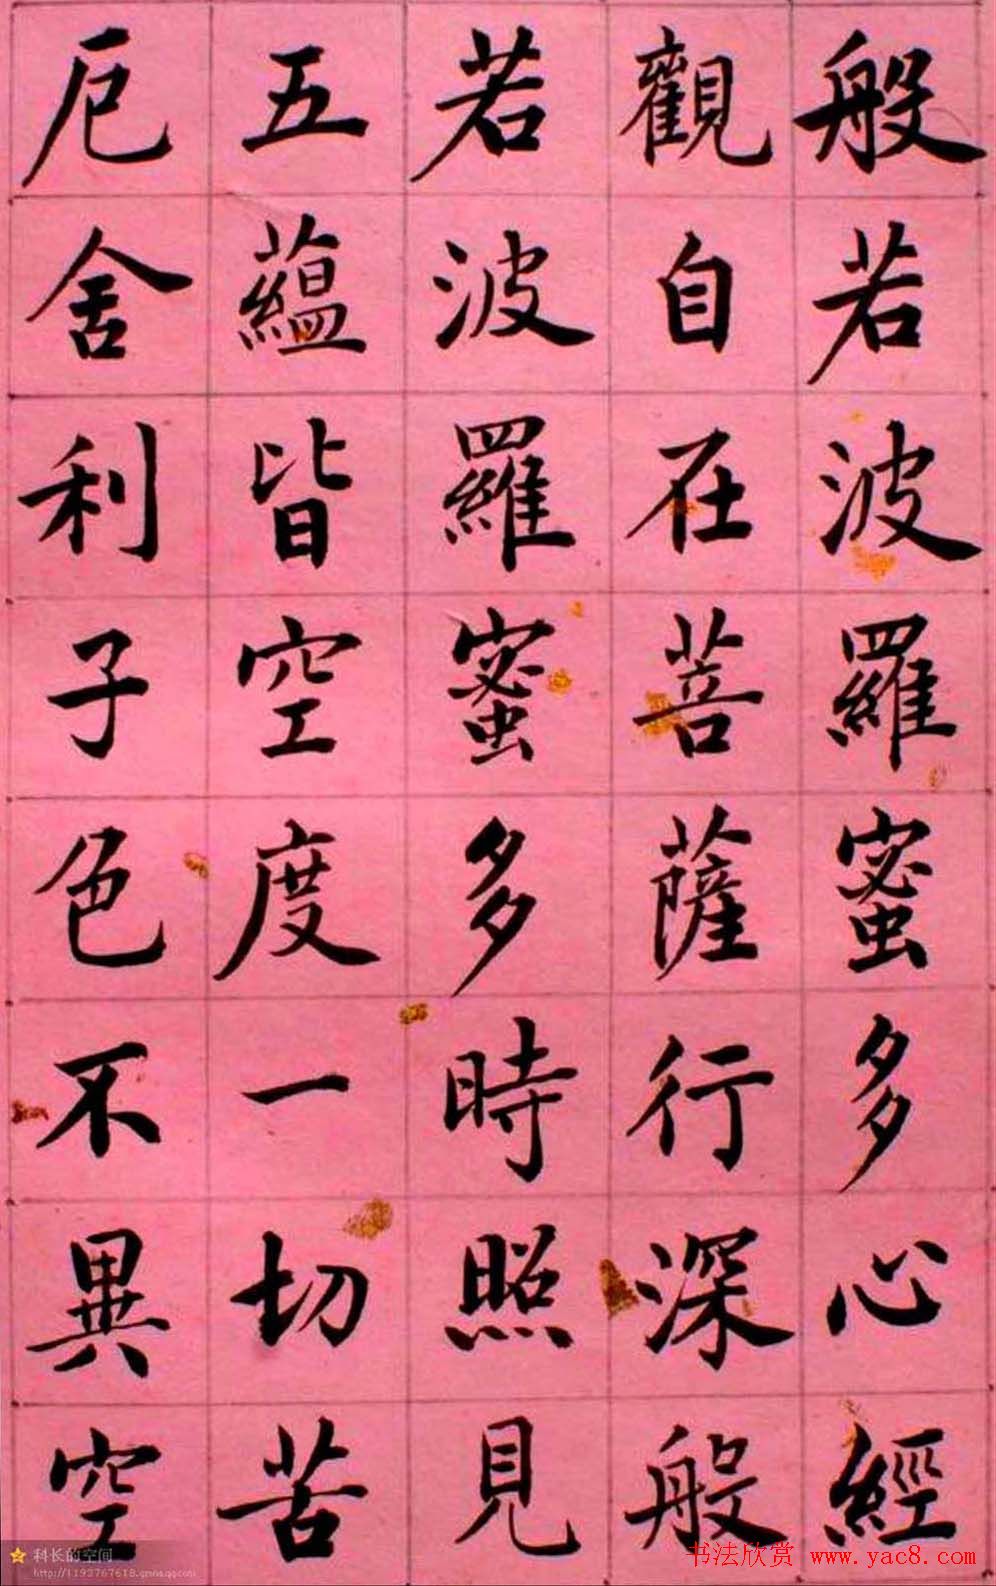 般若波羅蜜多心經
觀自在菩薩行深般
若波羅蜜多時照見
五蘊皆空度一切苦
厄舍利子色不異空
科长的空间
http://1192767618.qzone.qq.com
书法欣赏 www.yac8.com